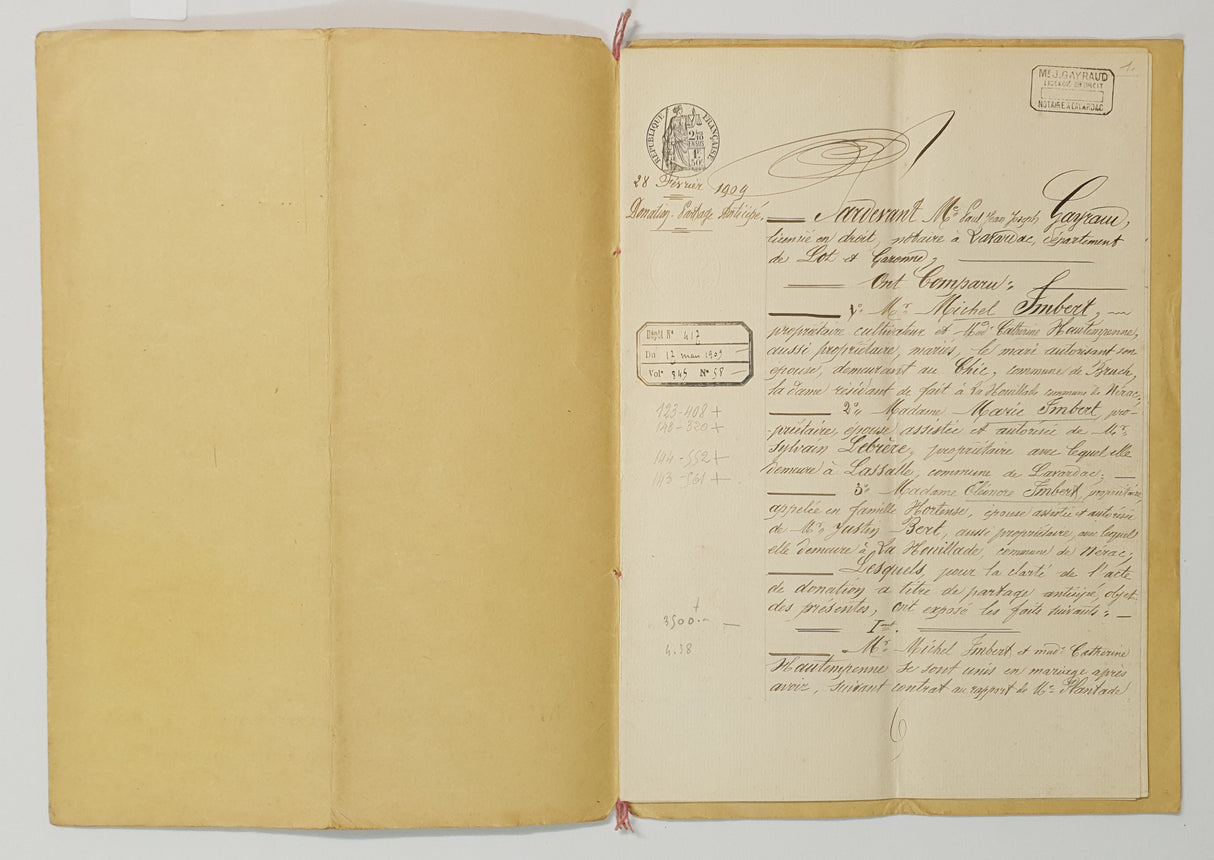 1.
Me J. GAYRAUD
LICENCIÉ EN DROIT
NOTAIRE A LAVARDAC
RÉPUBLIQUE FRANÇAISE
28 Février 1909
Donation-Partage Anticipé.
Pardevant Me Paul Jean Joseph Gayraud,
licencié en droit, notaire à Lavardac, département
de Lot et Garonne,
Ont Comparu :
1° Mr Michel Imbert,
propriétaire cultivateur et Made Catherine Hautempenne,
aussi propriétaire, mariés, le mari autorisant son
épouse, demeurant au Chic, commune de Bruch,
la dame résidant de fait à La Houillade commune de Nérac,
2° Madame Marie Imbert, pro-
-priétaire, épouse assistée et autorisée de Mr
Sylvain Lebrère, propriétaire avec lequel elle
demeure à Lassalle, commune de Lavardac;
3° Madame Eléonore Imbert, propriétaire,
appelée en famille Hortense, épouse assistée et autorisée
de Mr Justin Bert, aussi propriétaire, avec lequel
elle demeure à La Houillade, commune de Nérac;
Lesquels, pour la clarté de l'acte
de donation à titre de partage anticipé, objet
des présentes, ont exposé les faits suivants :
Ient
Mr Michel Imbert et made Catherine
Hautempenne se sont unis en mariage après
avoir, suivant contrat au rapport de Me Plantade
Dépôt N° 417
Du 17 mai 1909
Vol° 345 N° 58
123-408 +
148-320 +
144-552 +
143-561 +
3500.-
4.38